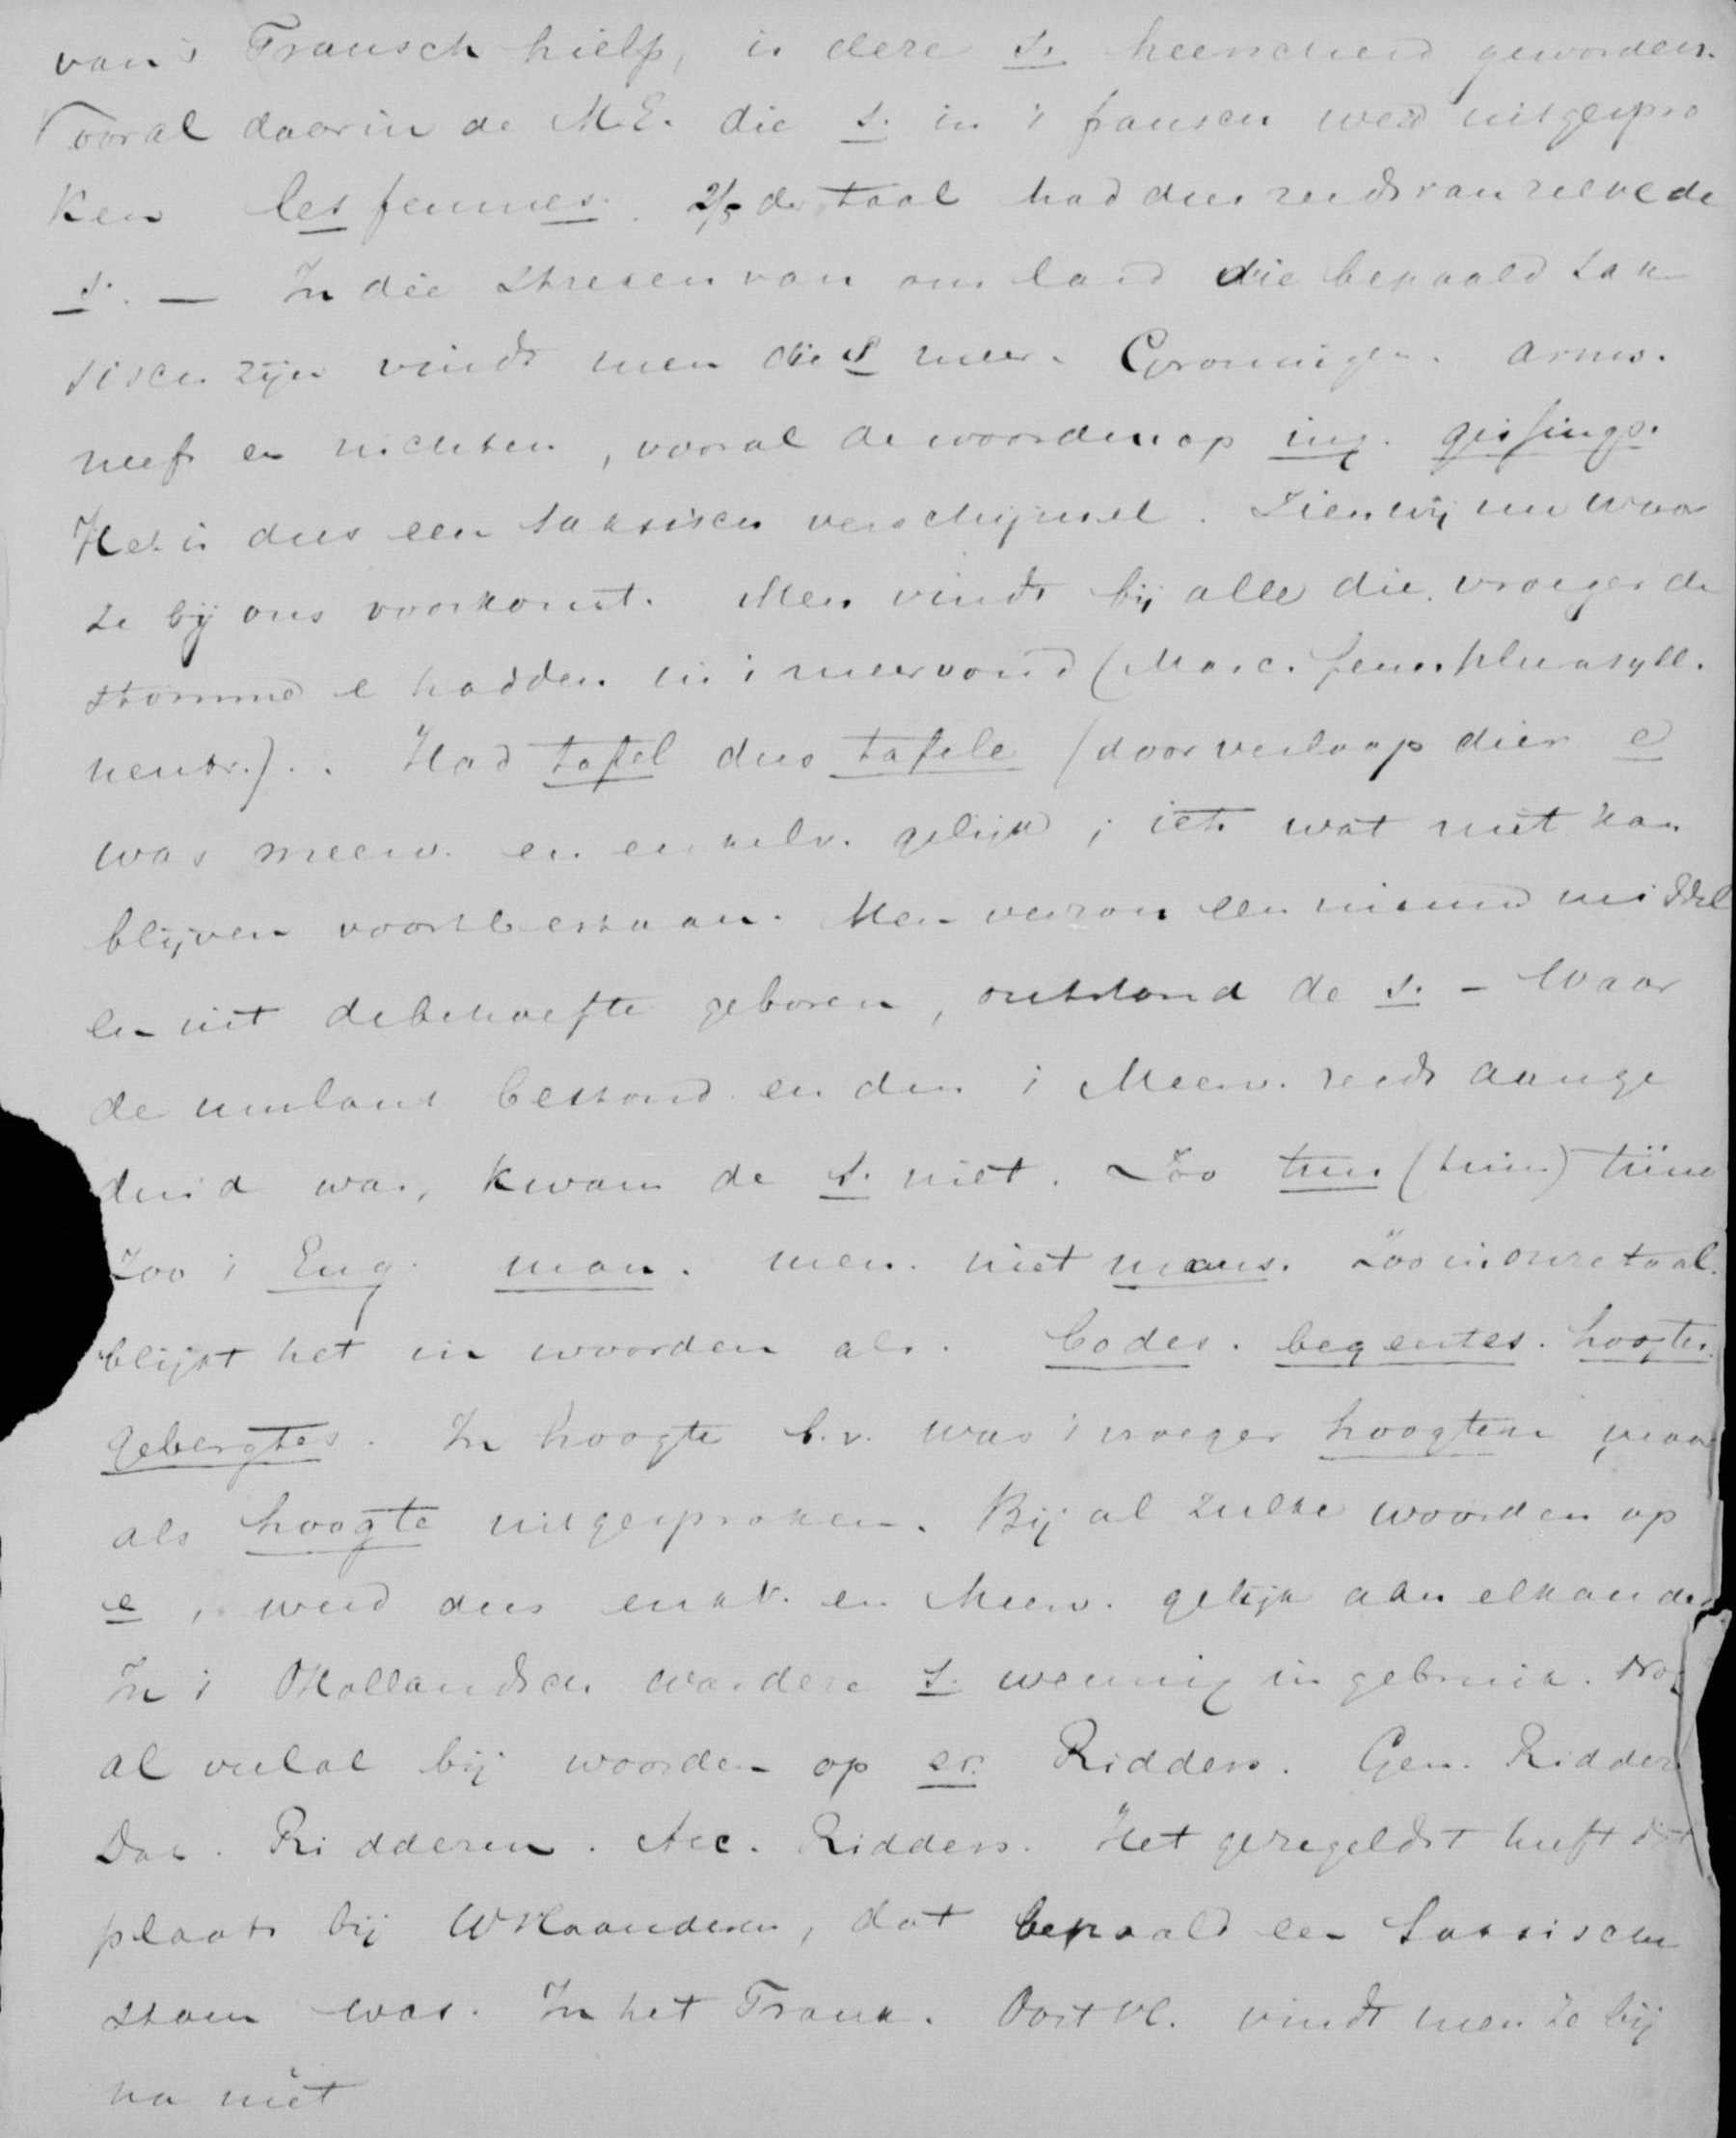 van 's Fransch hielp, is deze s. heerschend geworden.
Vooral daar in de M.E. die s. in 't fransch werd uitgespro
ken les femmes. 2/5 der taal had dus reeds van zelve de
s. — In die streken van ons land die bepaald Sak
sisch zijn vindt men die s meer. Groningen. arms.
neefs en nichten, vooral de woorden op ing. gissings.
Het is dus een Saksisch verschijnsel. Zien wij nu waar
ze bij ons voorkomt. Men vindt bij alle die vroeger de
stomme e hadden in 't meervoud (Masc. fem. plurasyll.
neutr.).. Had tafel dus tafele (door verloop dier e
was meerv. en enkelv. gelijk; iets wat niet kan
blijven voortbestaan. Men verzon een nieuw middel
en uit de behoefte geboren, ontstond de s. - Waar
de umlaut bestond en dus 't Meerv. reeds aange
duid was, kwam de s. niet. Zoo tun (tuin) tüne
Zoo 't Eng. man. men. niet mans. Zoo in onze taal.
blijkt het in woorden als. bodes. begeertes. hoogtes.
gebergtes. In hoogte b.v. was 't vroeger hoogten maar
als hoogte uitgesproken. Bij al zulke woorden op
e, werd dus enkv. en Meerv. gelijk aan elkander.
In 't Hollandsch was deze s. weinig in gebruik. Nog
al veelal bij woorden op er. Ridders. Gen. Ridder
Dat. Ridderen. Acc. Ridders. Het geregeldst heeft dit
plaats bij WVlaanderen, dat bepaald een Saksische
stam was. In het Frank. Oost Vl. vindt men ze bij
na niet